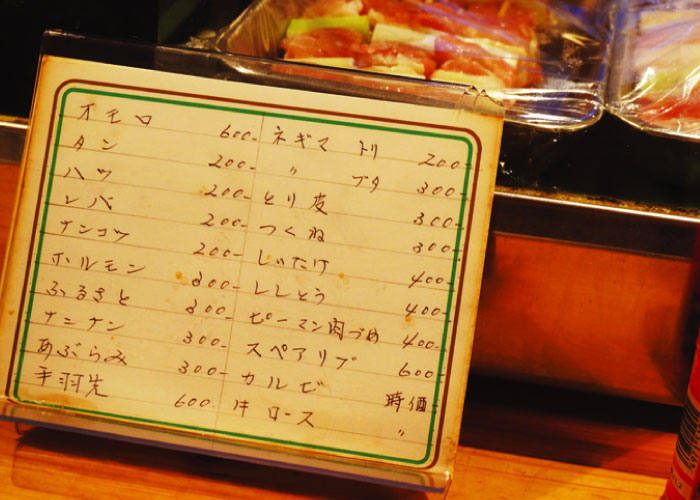 オモロ 600-
タン 200-
ハツ 200-
レバ 200-
ナンコツ 200-
ホルモン 300-
ふるさと 300-
ナンナン 300-
あぶらみ 300-
手羽先 600-
ネギマ トリ 200-
〃 ブタ 300-
とり皮 300-
つくね 300-
しいたけ 400-
ししとう 400-
ピーマン肉づめ 400-
スペアリブ 600-
カルビ 時価
牛ロース 〃